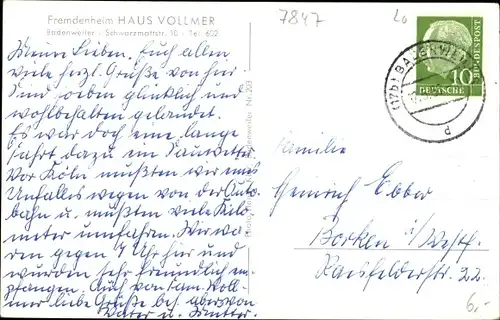 Fremdenheim HAUS VOLLMER
Badenweiler - Schwarzmattstr. 10 - Tel. 602
7847
Meine Lieben. Euch allen
viele herzl. Grüße von hier.
Sind soeben glücklich und
wohlbehalten gelandet.
Es war doch eine lange
Fahrt dazu im Sauwetter.
Vor Köln mußten wir eines
Unfalles wegen von der Auto-
bahn u. mußten viele Kilo-
meter umfahren. Wir wa-
ren gegen 7 Uhr hier und
wurden sehr freundlich em-
pfangen. Auch von Fam. Voll-
mer liebe Grüße bes. aber von
Vater u. Mutter.
(17b) BADENWEILER
d
10
DEUTSCHE BUNDESPOST
Familie
Heinrich Ebber
Borken i/Westf.
Raesfelderstr. 22
6,-